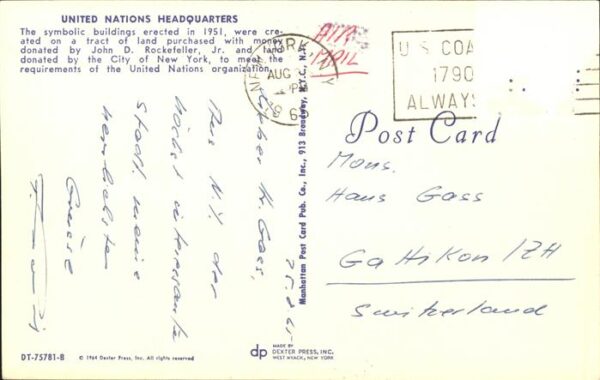 UNITED NATIONS HEADQUARTERS
The symbolic buildings erected in 1951, were cre-
ated on a tract of land purchased with money
donated by John D. Rockefeller, Jr. and land
donated by the City of New York, to meet the
requirements of the United Nations organization.
AIR
MAIL
NEW YORK, N.Y.
AUG
PM
U S COA
1790
ALWAYS
Post Card
Mons.
Hans Gass
Gattikon /ZH
Switzerland
25.8.65
Lieber H. Gass,
Aus N.Y. der
Stadt meine
herzlichsten
Grüsse
Manhattan Post Card Pub. Co., Inc., 913 Broadway, N.Y.C., N.Y.
DT-75781-B
© 1964 Dexter Press, Inc. All rights reserved
dp
MADE BY
DEXTER PRESS, INC.
WEST NYACK, NEW YORK